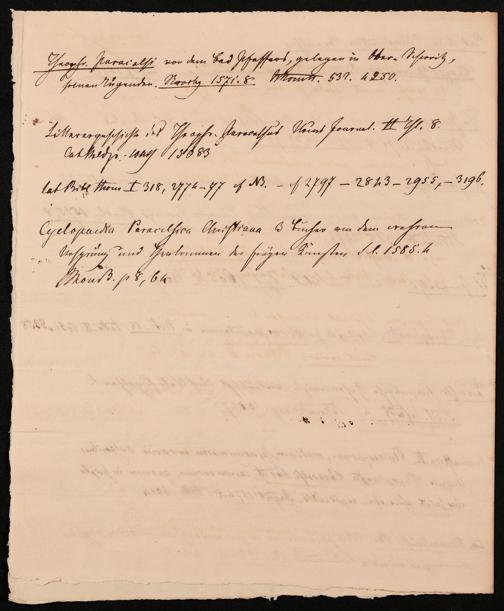 Theophr. Paracelsi von dem Bad Pfeffers, gelegen in Ober-Schweitz,
seinen Tugenden. 1571. 8. 532. 4250.
Litterargeschichte des Theophr. Paracelsus Journal. II 8.
Cat. 13083
Cat Bibl Thom. I 318, 2774-77 cf NB. - cf 2797 - 2843 - 2955, - 3196.
Cyclopaedia Paracelsica Christiana 3 Bücher von dem wahren
Ursprung und Herkommen der freyen Künsten s. l. 1585. 4
p 8, 64